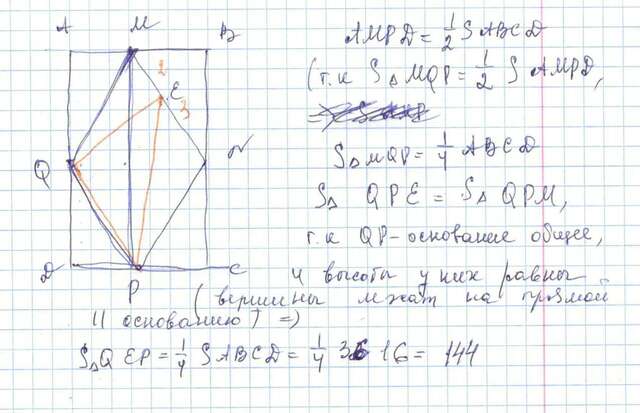 A M B
AMPD = 1/2 SABCD
2
(т.к S△MQP = 1/2 S AMPD,
E
3
S△MQP = 1/4 ABCD
N
Q
S△ QPE = S△ QPM,
т.к QP-основание общее,
D P C
и высоты у них равны
(вершины лежат на прямой
|| основанию) =)
S△QEP = 1/4 SABCD = 1/4 36 16 = 144